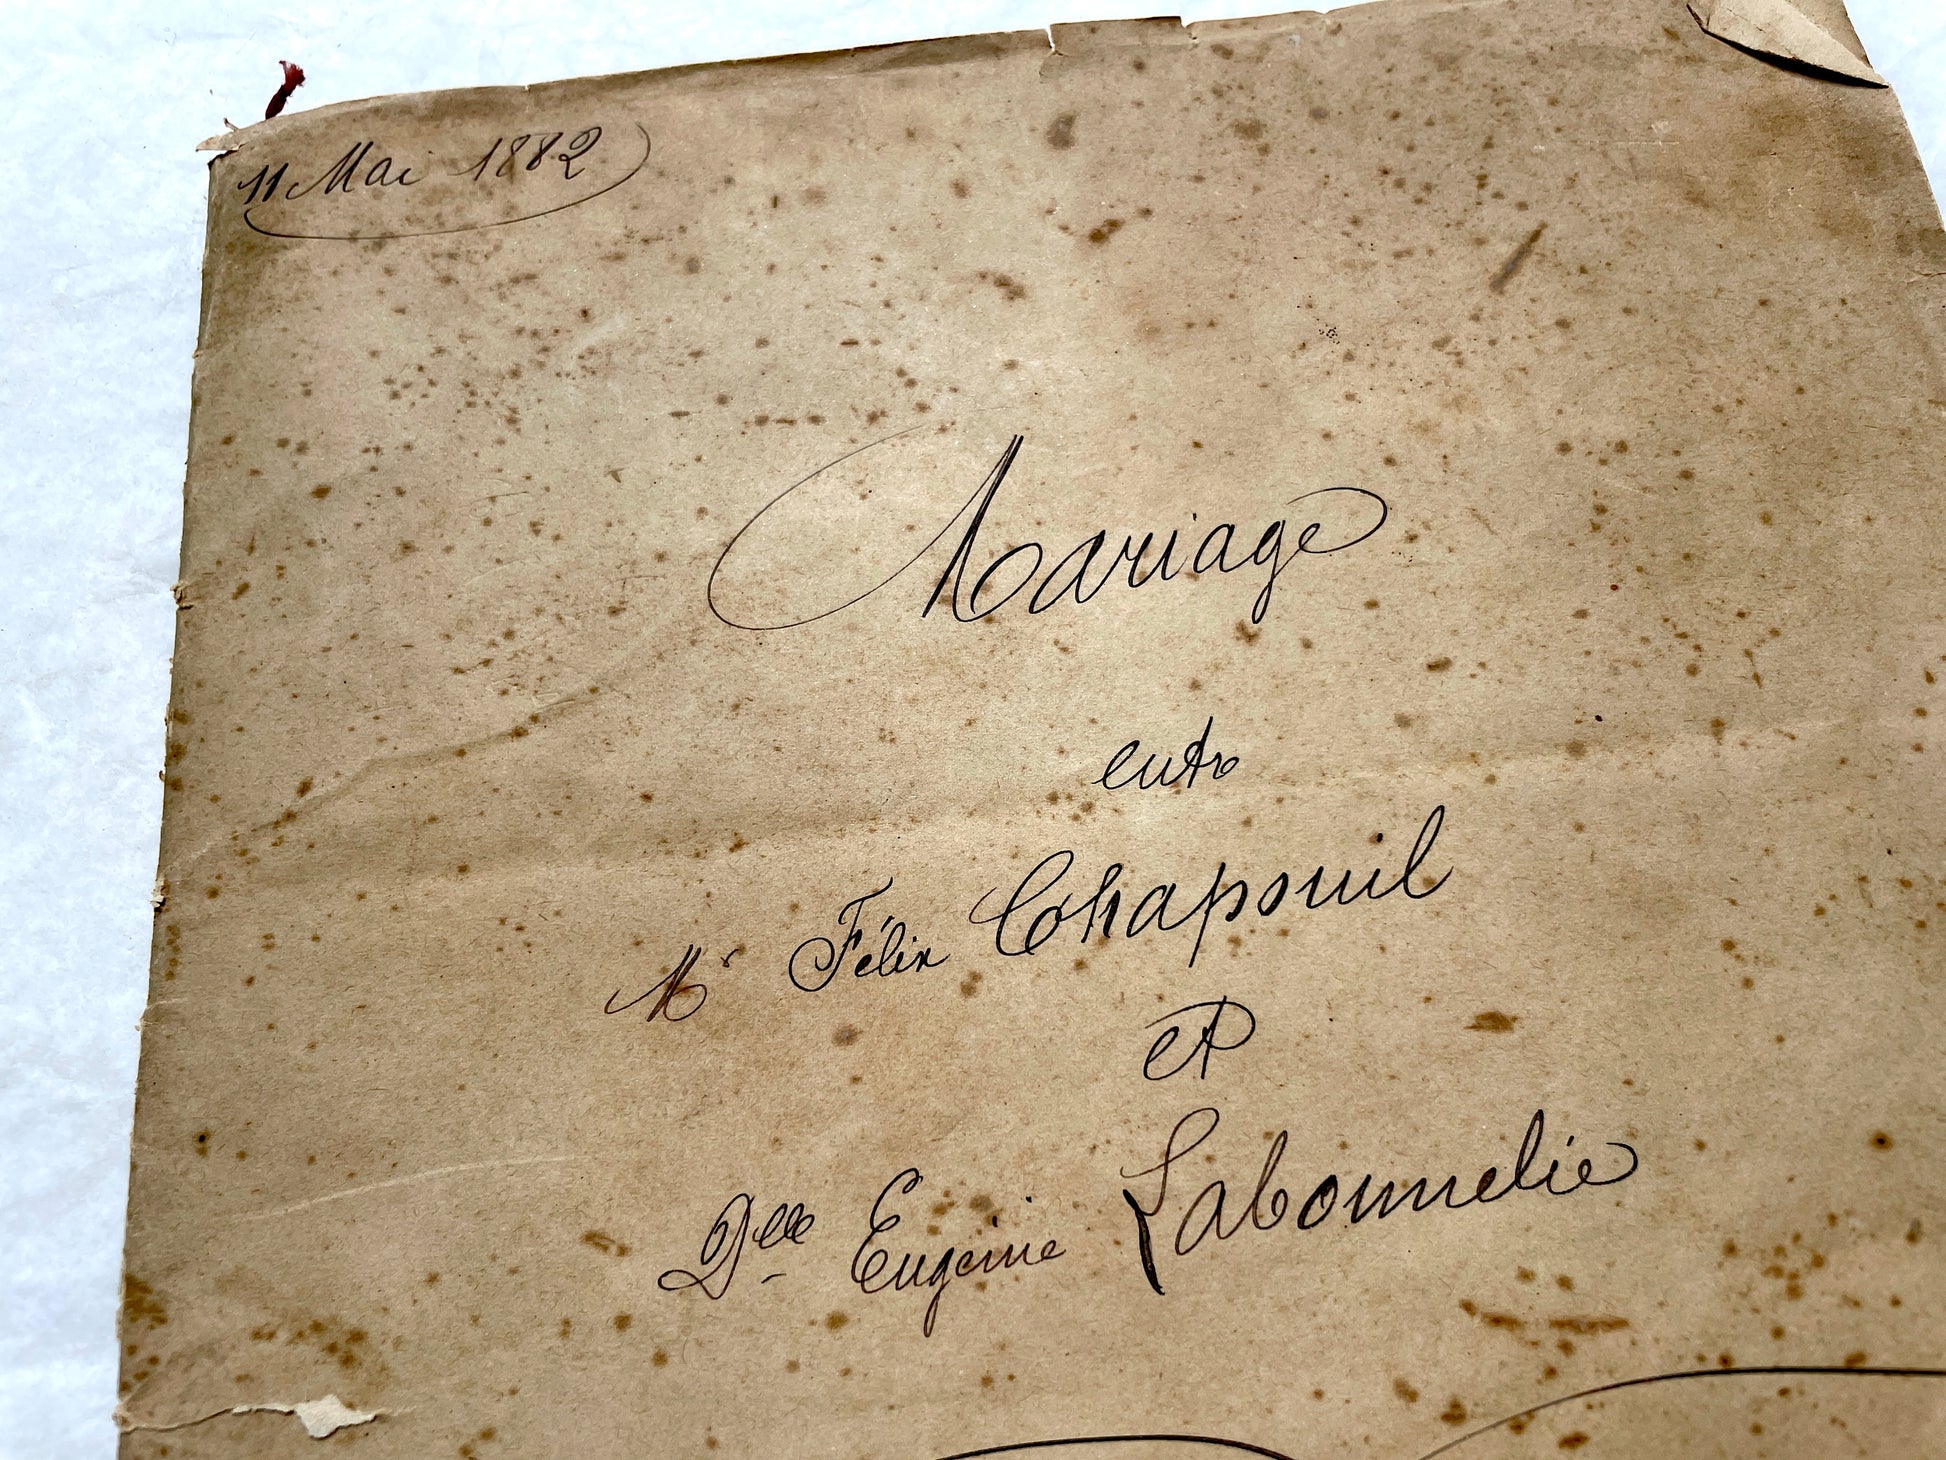 11 Mai 1882
Mariage
entre
Mr Félix Chapouil
et
Dlle Eugénie Labonnelie